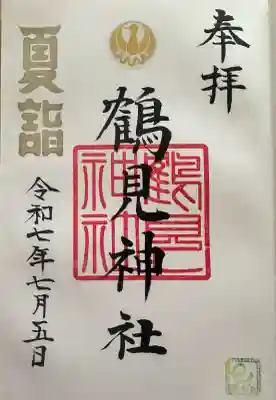 奉拝
鶴見神社
鶴見神社
夏詣
令和七年七月五日